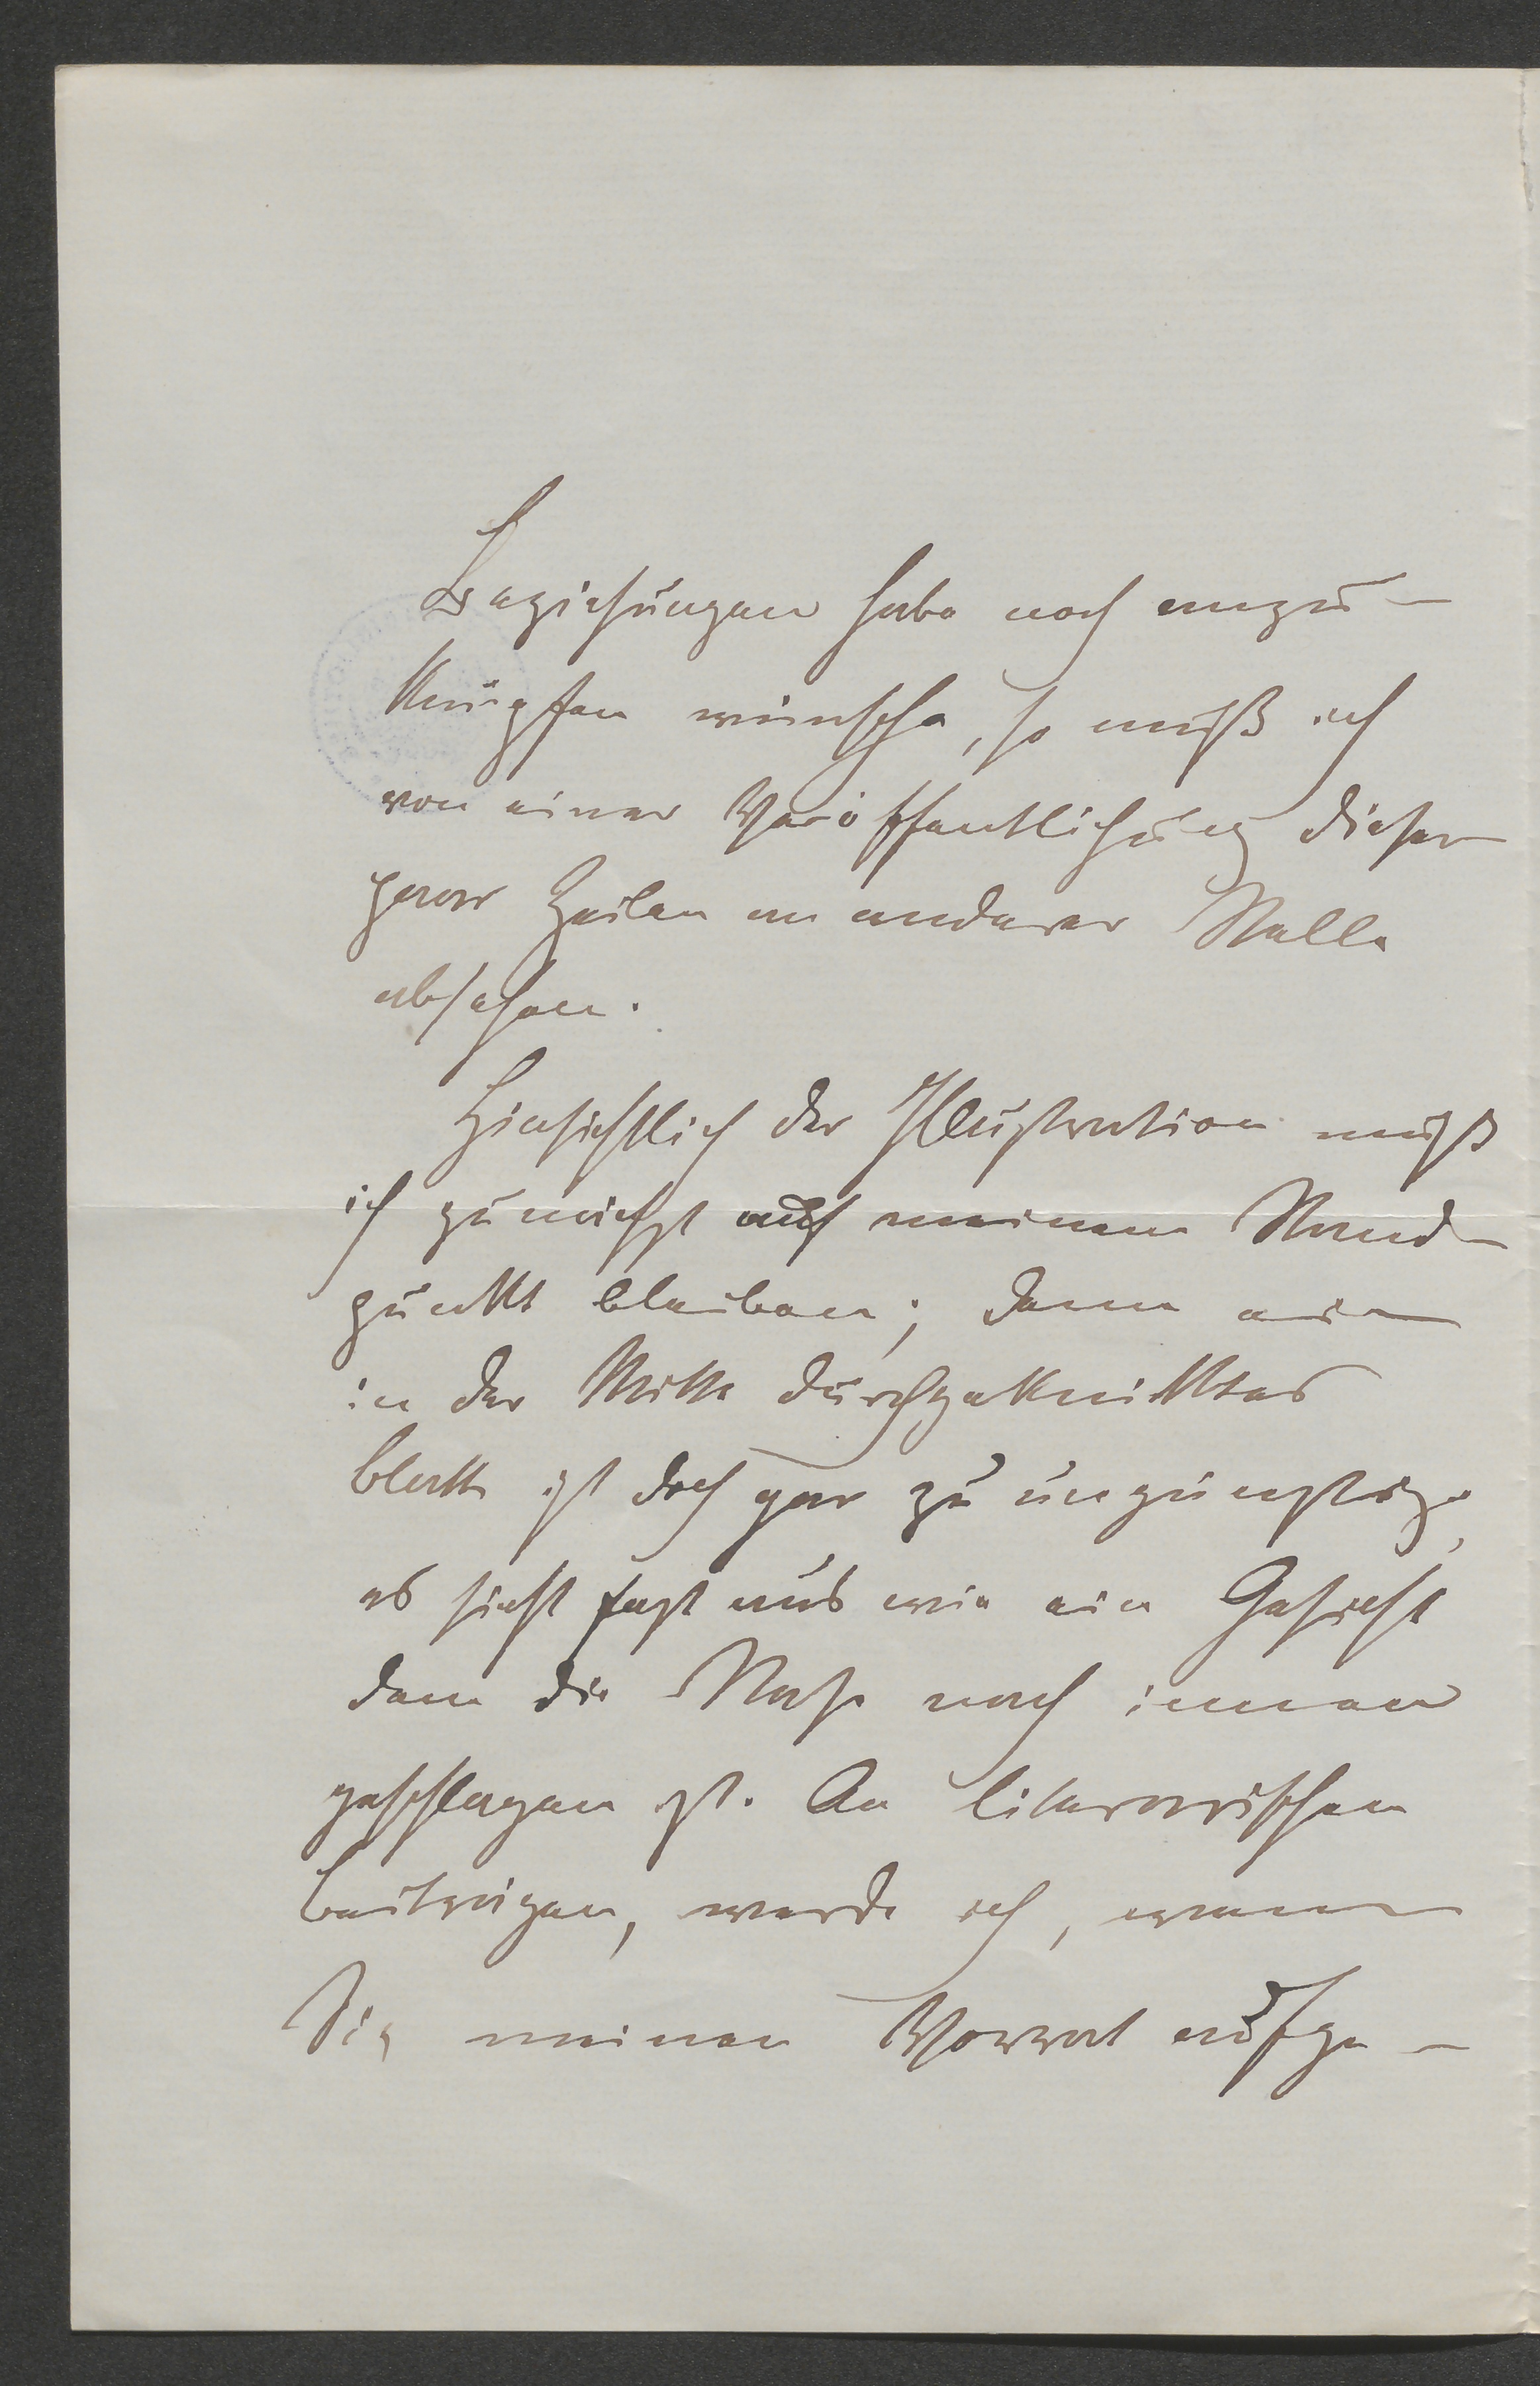 Beziehungen habe noch anzu-
knüpfen wünsche, so muß ich
von einer Veröffentlichung dieser
paar Zeilen an anderer Stelle
absehen.
Hinsichtlich der Illustration muß
ich zunächst auf meinem Stand-
punkt bleiben; denn ein
in der Mitte durchgeknicktes
Blatt ist doch gar zu ungünstig,
es sieht fast aus wie ein Gesicht
dem die Nase nach innen
geschlagen ist. An literarischen
Beiträgen, werde ich, wenn
Sie meinen Vorrat aufge-